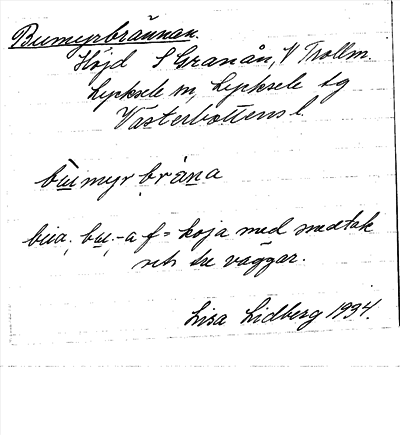 Bumyrbrännan.
Höjd S Granån, V Trollm.
Lycksele sn, Lycksele tg
Västerbottens l.
bumyr bräna
bua, bu, -a f = koja med snedtak
tre väggar.
Lisa Lidberg 1934.